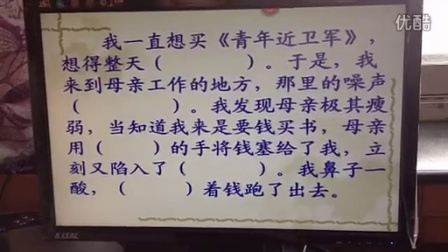 优酷
我一直想买《青年近卫军》，
想得整天（　　　　）。于是，我
来到母亲工作的地方，那里的噪声
（　　　　　）。我发现母亲极其瘦
弱，当知道我来是要钱买书，母亲
用（　　　）的手将钱塞给了我，立
刻又陷入了（　　　　）。我鼻子一
酸，（　　　　）着钱跑了出去。